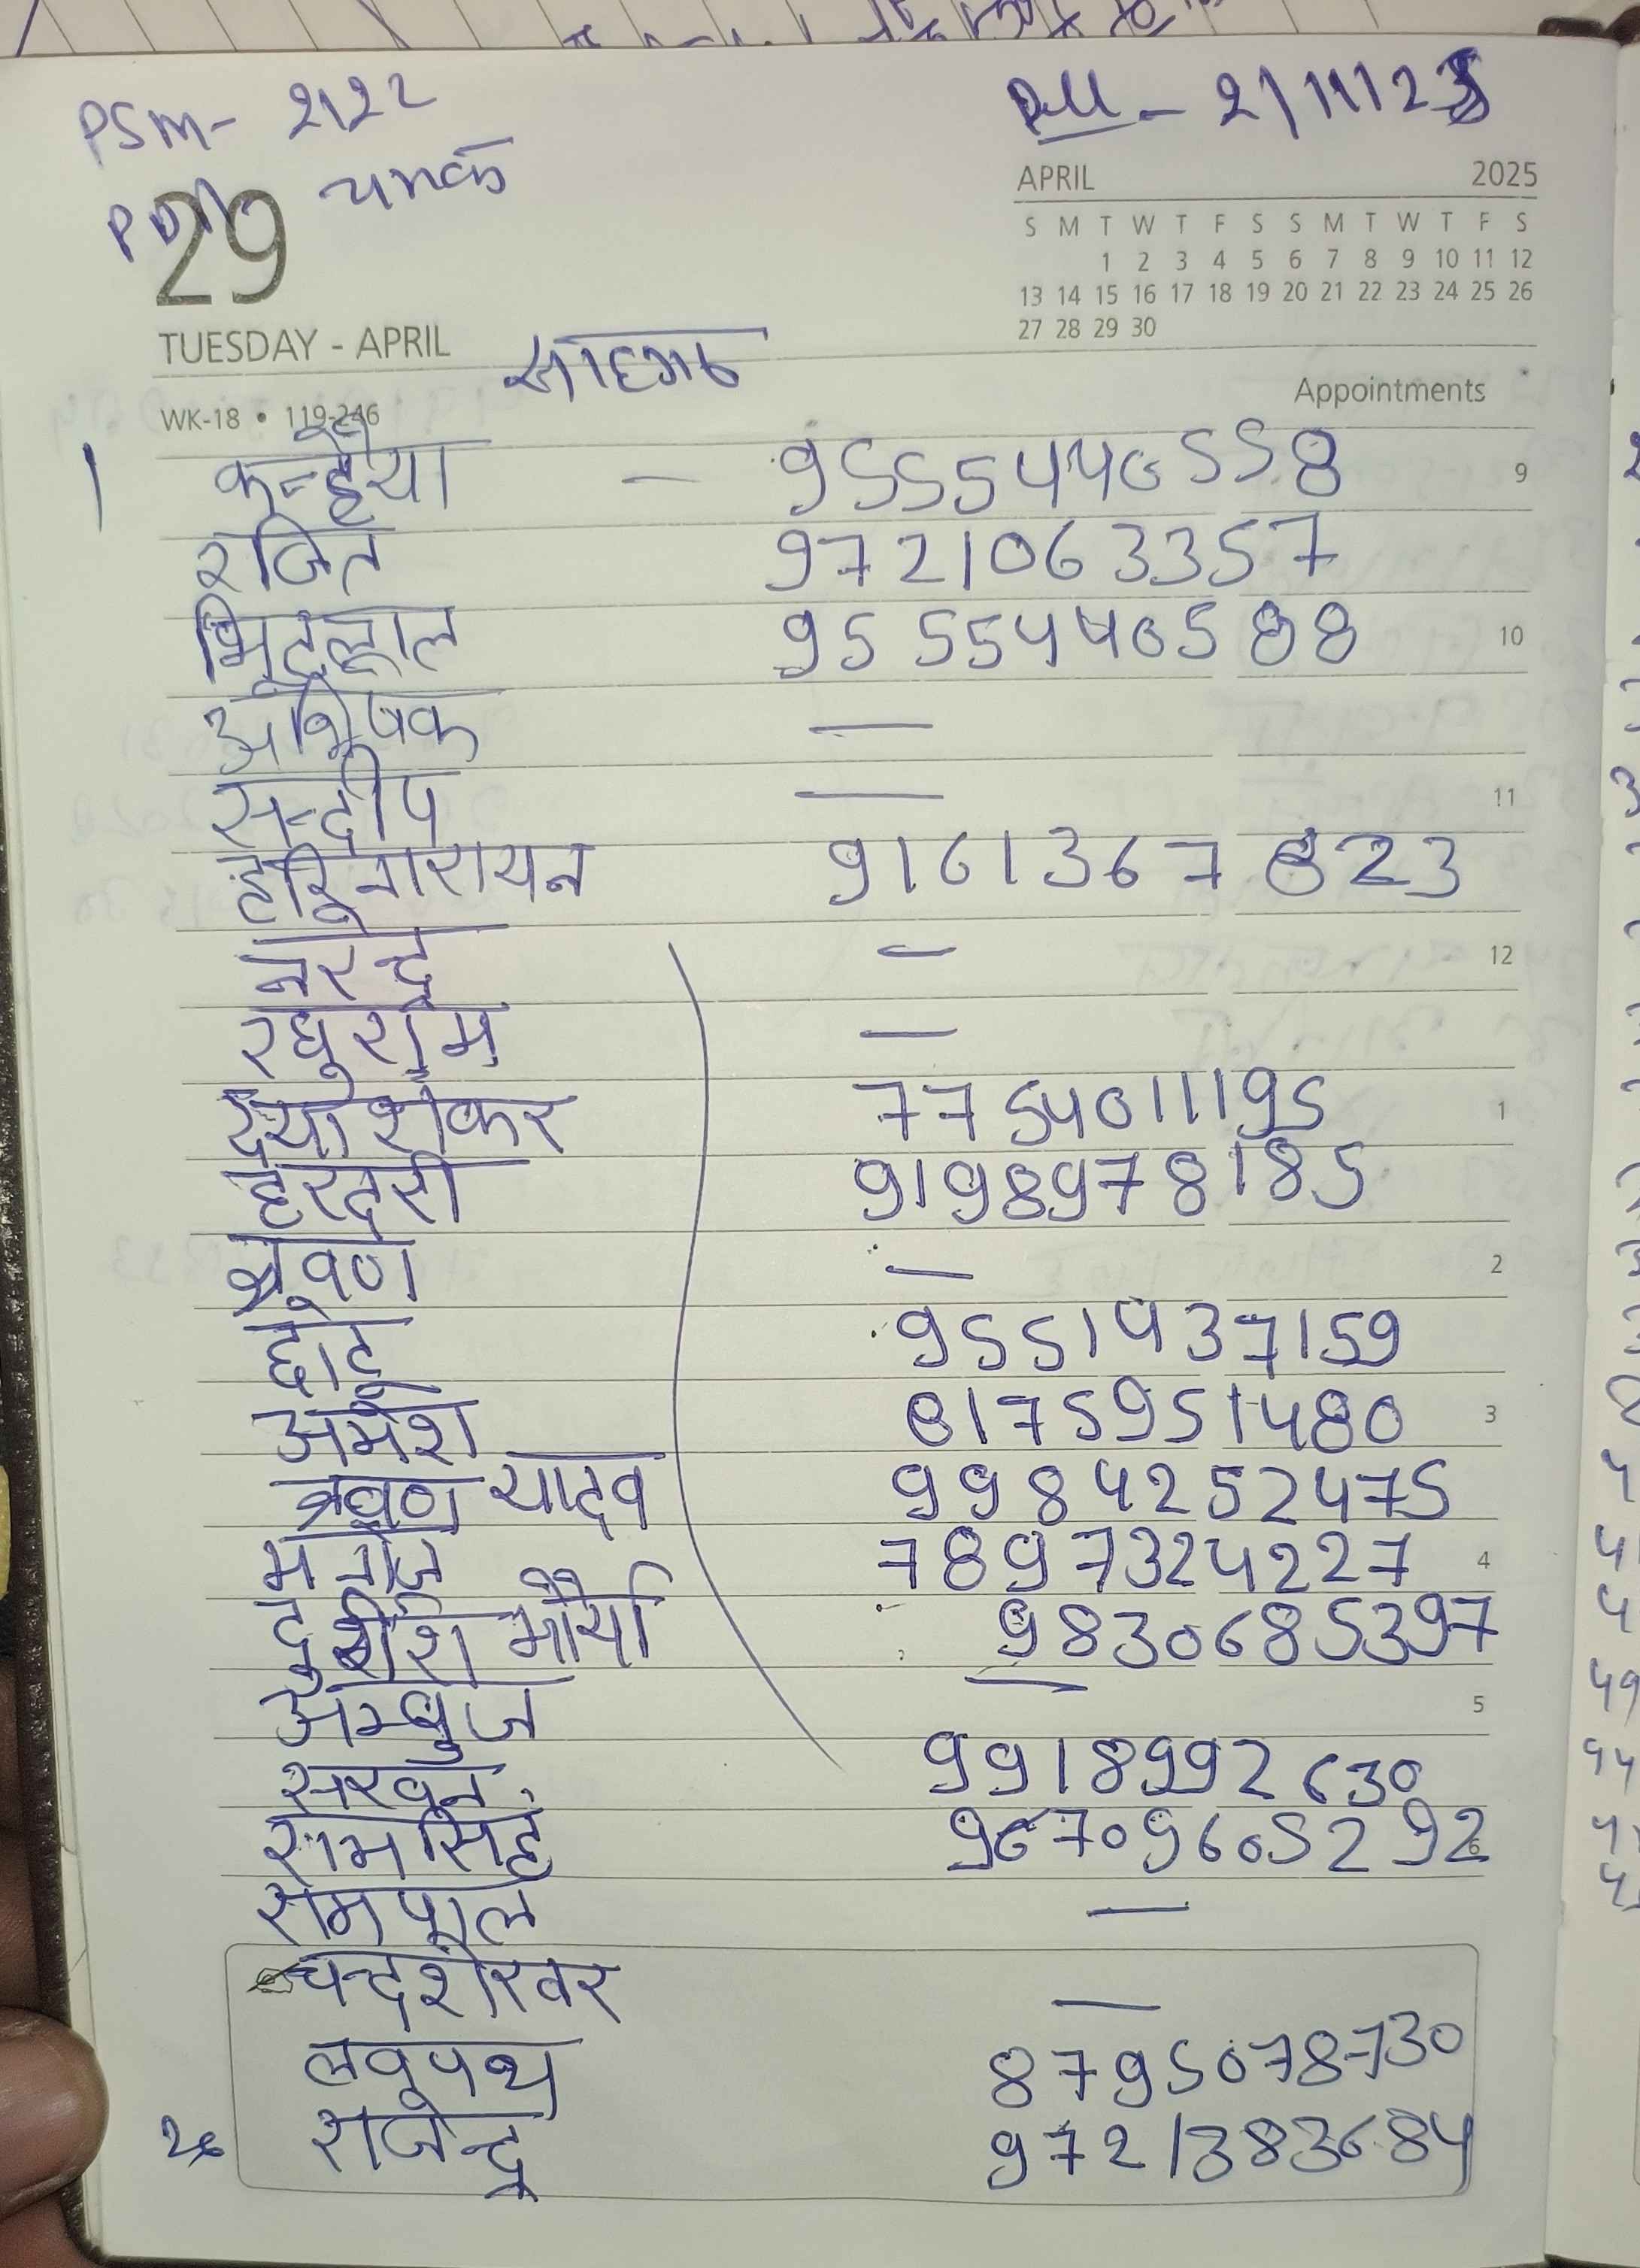 PSM- 2122
RM - 2/11/25
APRIL 2025
S M T W T F S S M T W T F S
1 2 3 4 5 6 7 8 9 10 11 12
13 14 15 16 17 18 19 20 21 22 23 24 25 26
27 28 29 30
29
TUESDAY - APRIL
WK-18 • 119-246
Appointments
1 कन्हैया — 9555440558 9
रंजित 9721063357
95554440588 10
अभिषेक —
सन्दीप — 11
हरिनारायन 9161367823
नरेन्द्र — 12
रघुराम —
दयाशंकर 7754011195 1
हरदरी 9198978185
श्रवण — 2
छोटू 9551437159
अमेश 8175951480 3
श्रवण यादव 9984252475
मनोज 7897324227 4
मौर्या 9830685397
अम्बुज — 5
सरवन 9918992630
रामसिंह 967096052 92 6
रामपाल —
चन्द्रशेखर —
लवपथ 8795078730
राजेन्द्र 9721383684